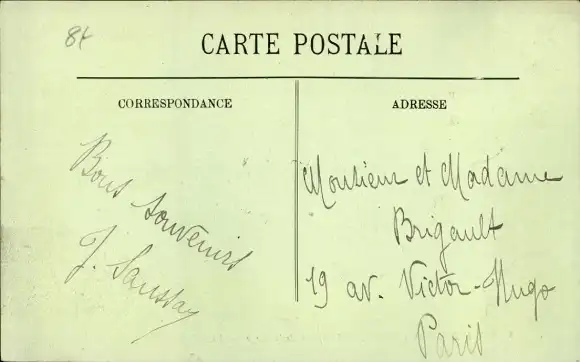 84
CARTE POSTALE
CORRESPONDANCE
ADRESSE
Bons souvenirs
J. Saussay
Monsieur et Madame
Brigault
19 av. Victor-Hugo
Paris